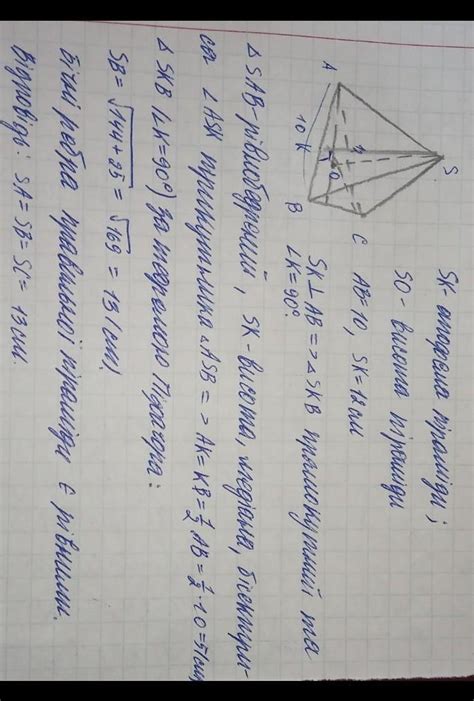 S
A
B
C
O
K
10
SK - апофема піраміди;
SO - висота піраміди
AB=10, SK=12 см
SK⊥AB => △SKB прямокутний та
∠K=90°.
△SAB - рівнобедрений, SK - висота, медіана, бісектри-
са ∠ASB трикутника △ASB => AK=KB=½AB=½·10=5(см)
△SKB (∠K=90°) за теоремою Піфагора:
SB=√144+25=√169=13(см)
Бічні ребра правильної піраміди є рівними.
Відповідь: SA=SB=SC=13см.